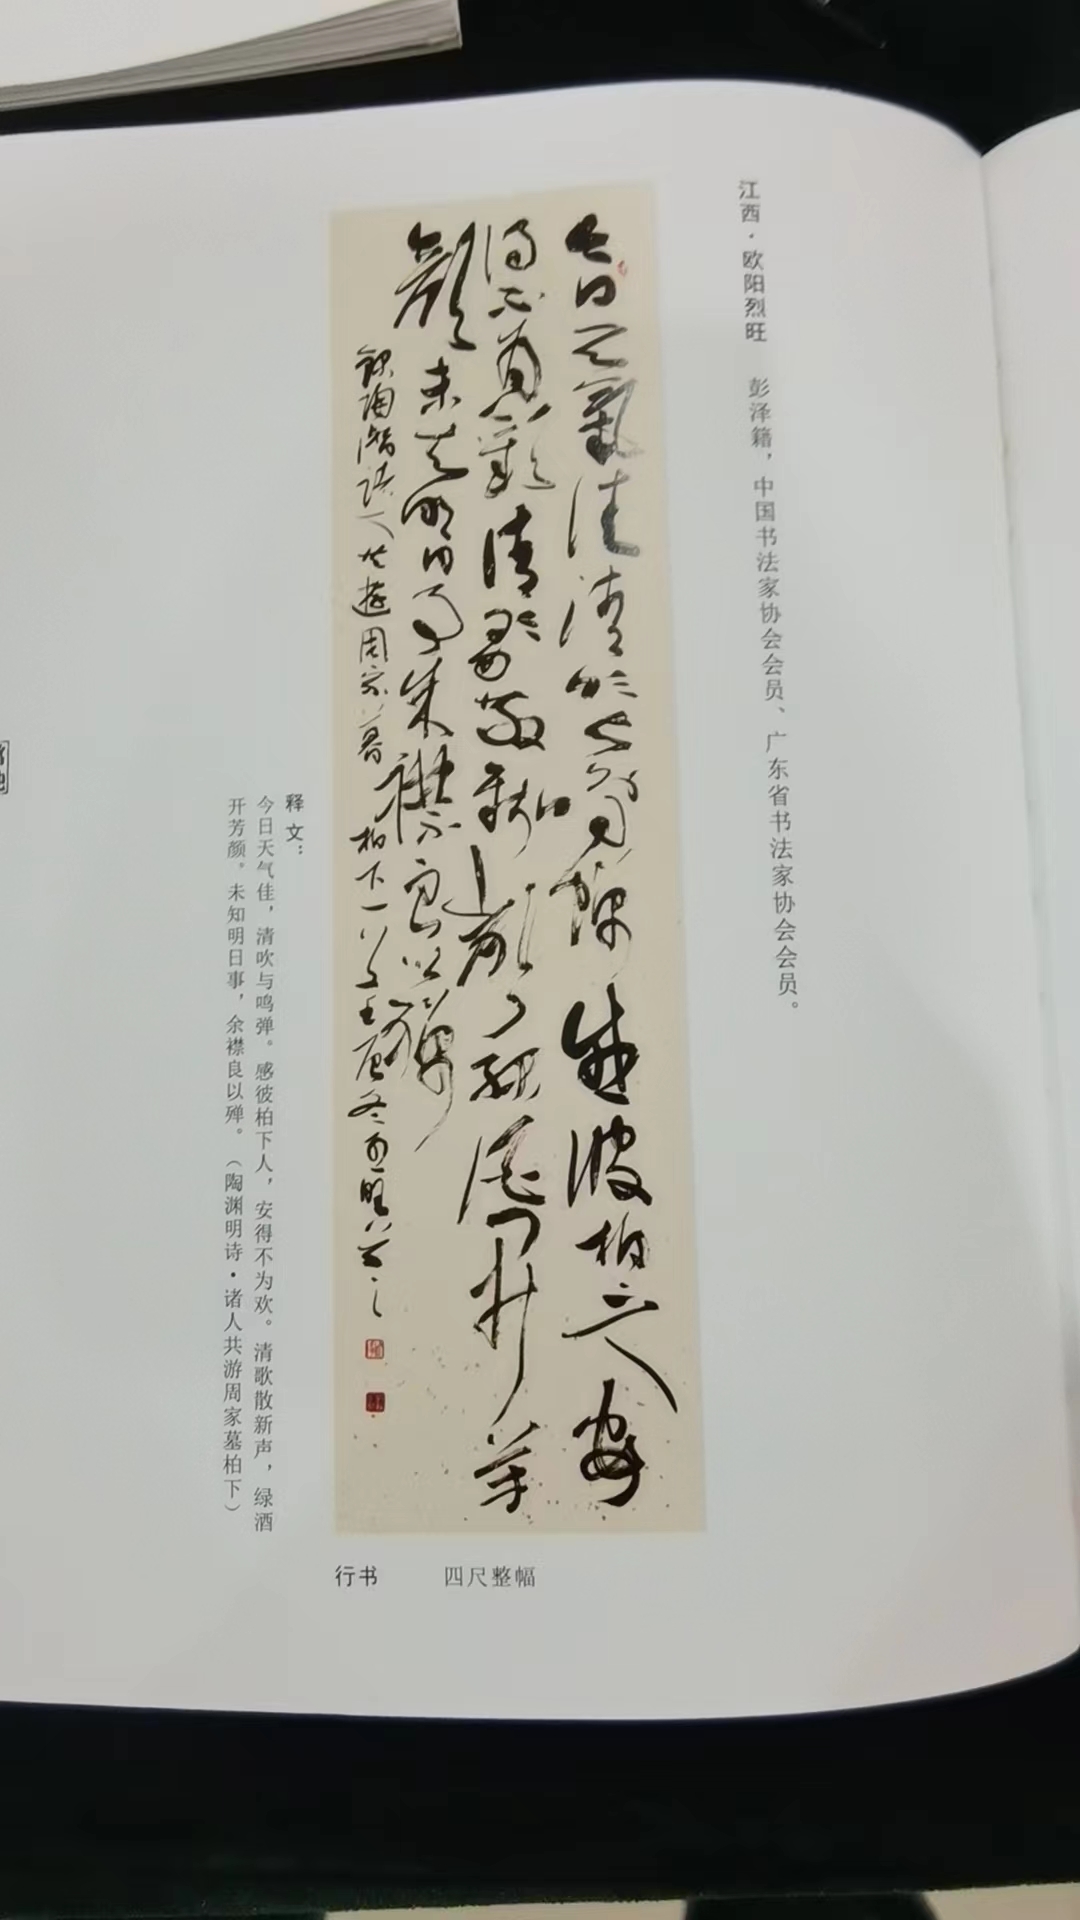 江西·欧阳烈旺 彭泽籍，中国书法家协会会员、广东省书法家协会会员。
今日天气佳清吹与鸣弹感彼柏下人安
得不为欢清歌散新声绿酒开芳
颜未知明日事余襟良以殚
录陶渊明诗诸人共游周家墓柏下一首壬辰冬烈旺书之
释文：
今日天气佳，清吹与鸣弹。感彼柏下人，安得不为欢。清歌散新声，绿酒
开芳颜。未知明日事，余襟良以殚。（陶渊明诗·诸人共游周家墓柏下）
行书 四尺整幅